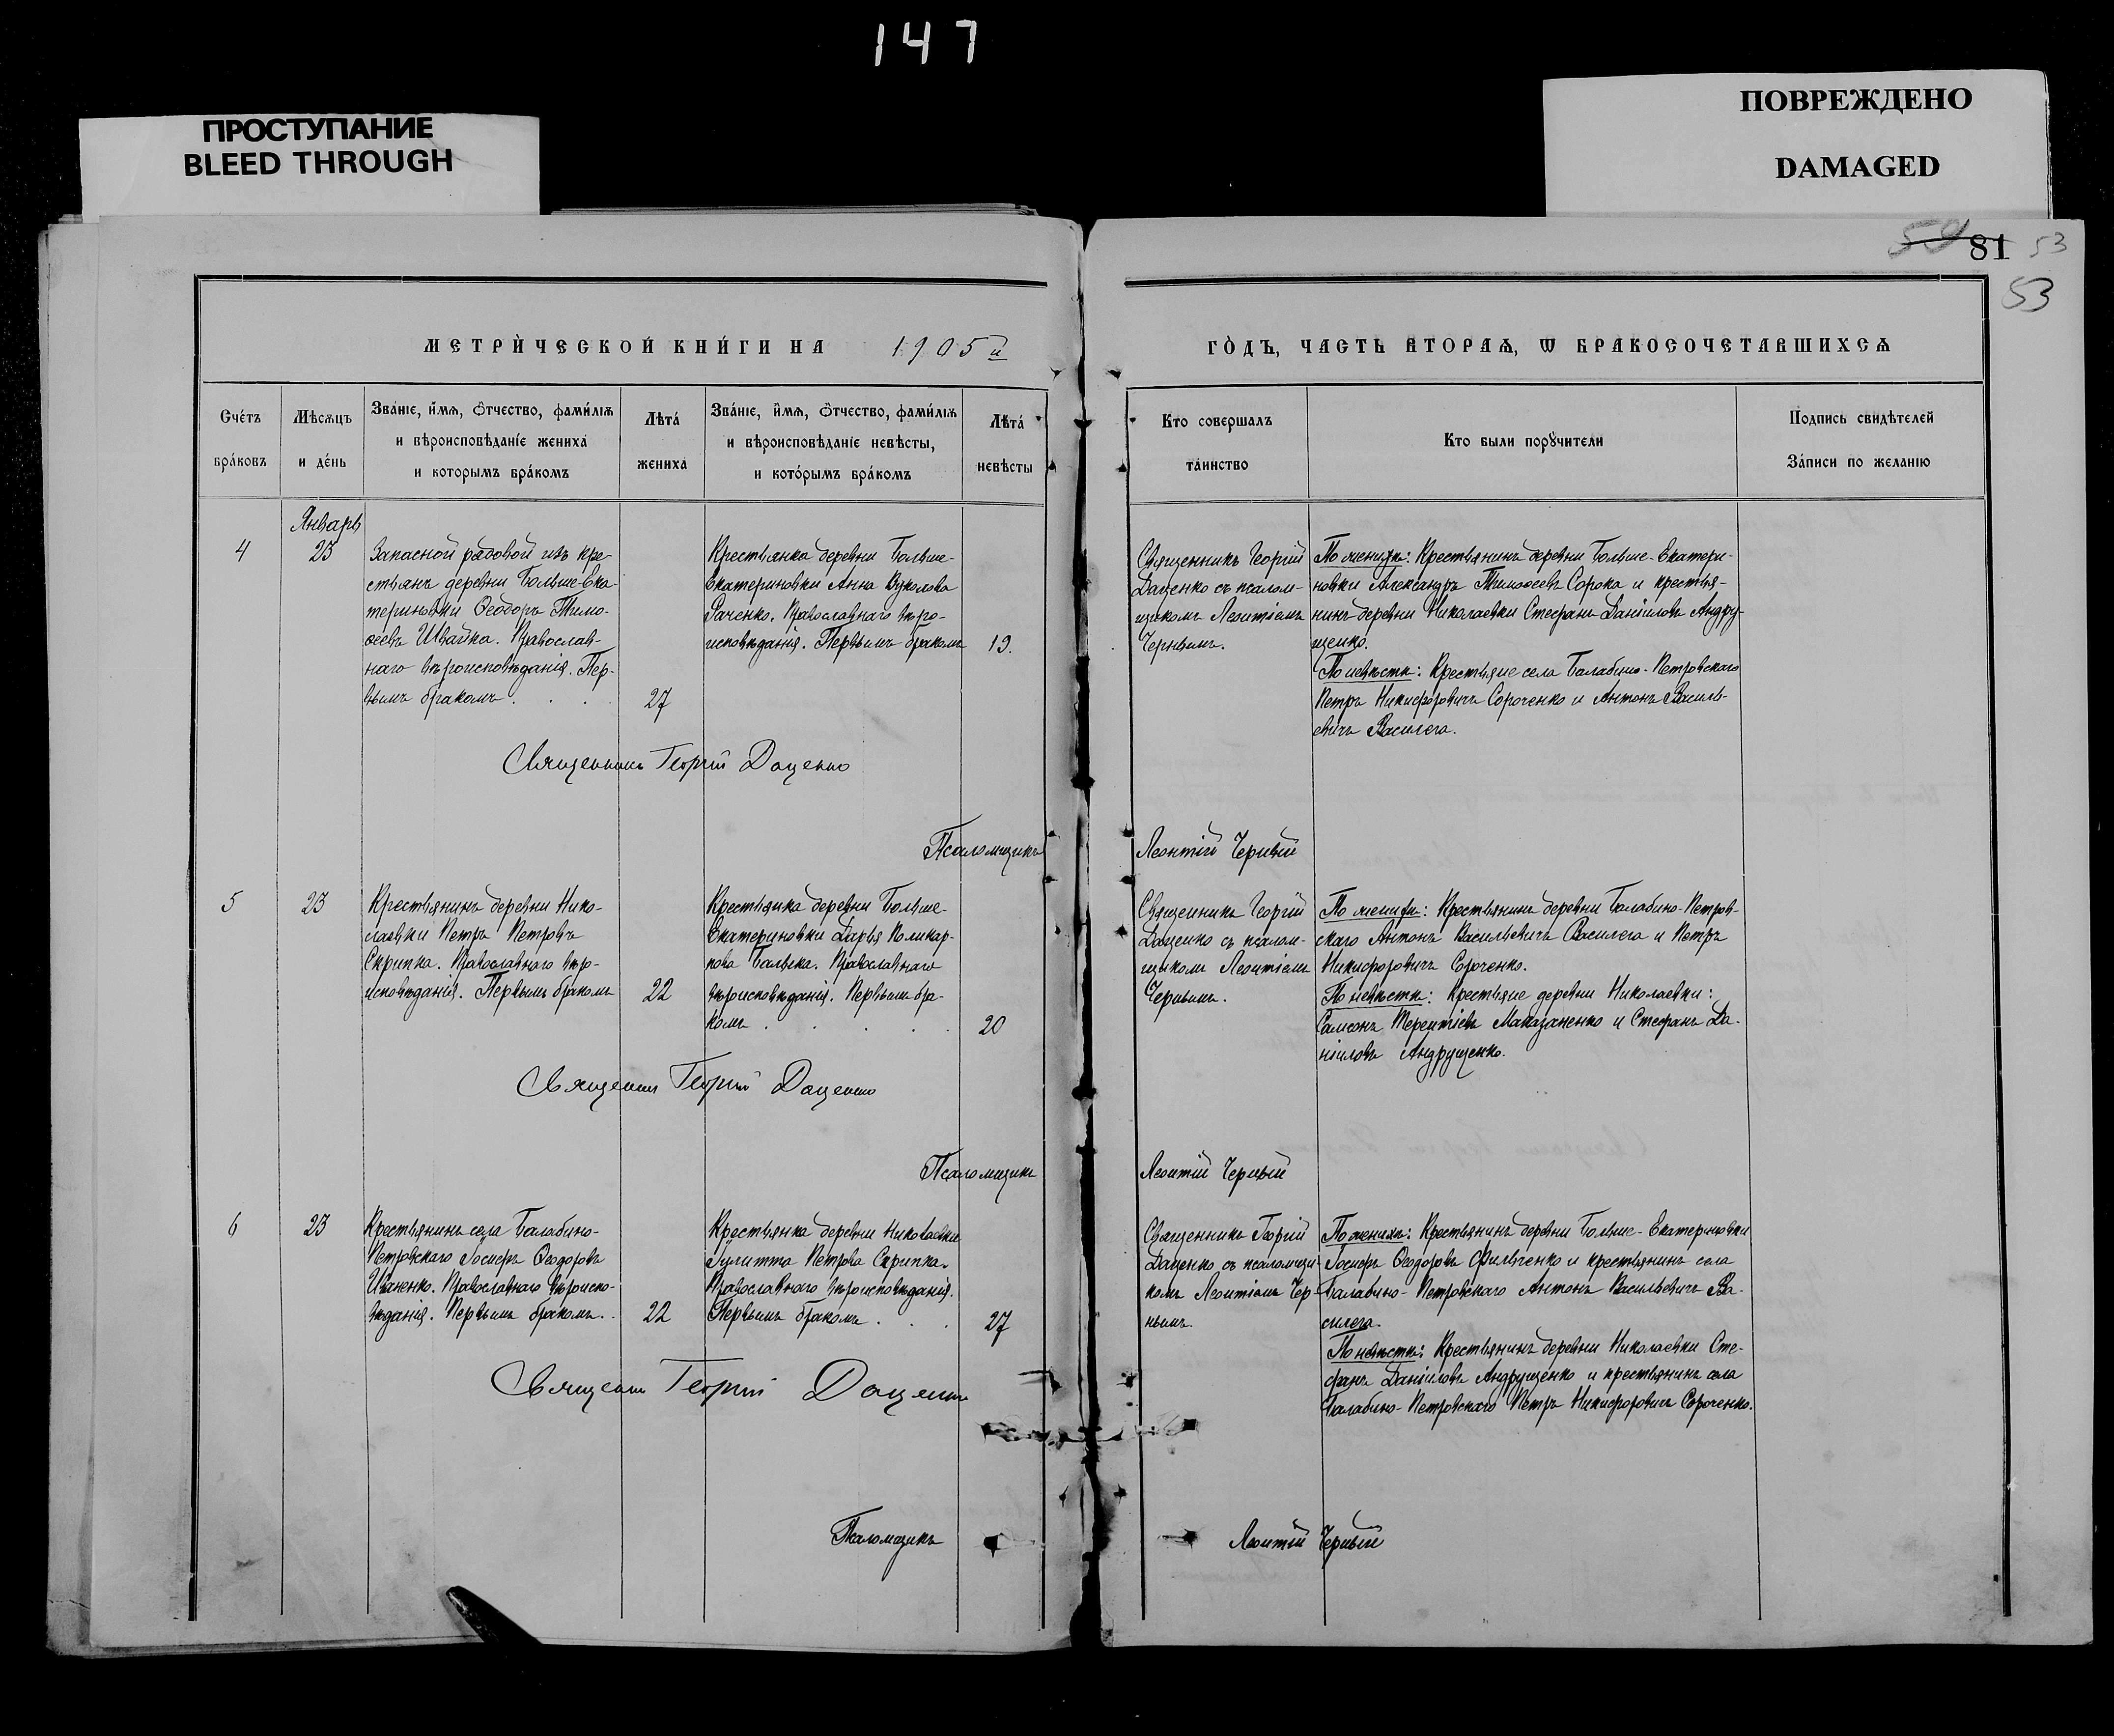 147
ПРОСТУПАНИЕ
BLEED THROUGH
ПОВРЕЖДЕНО
DAMAGED
59 81 53
53
МЕТРИ́ЧЕСКОЙ КНИ́ГИ НА 1905й
ГО́ДЪ, ЧАСТЬ ВТОРАѦ, Ѡ БРАКОСОЧЕТАВШИХСѦ
Сче́тъ
бра́ковъ
Мѣсѧцъ
и де́нь
Зва́нїе, и́мѧ, ѻ҆́тчество, фами́лїѧ
и вѣроисповѣда́нїе жениха̀
и которымъ бра́комъ
Лѣта́
жениха
Зва́нїе, и́мѧ, ѻ҆́тчество, фами́лїѧ
и вѣроисповѣда́нїе невѣ́сты,
и кото́рымъ бра́комъ
Лѣта́
невѣсты
Кто совершалъ
та́инство
Кто были порꙋчители
Подпись свидѣтелей
За́писи по желанїю
Январь
4
23
Запасной рядовой изъ кре-
стьянъ деревни Больше-Ека-
териновки Ѳеодоръ Тимо-
ѳеевъ Швайка. Православ-
наго вѣроисповѣданія. Пер-
вымъ бракомъ . . .
27
Крестьянка деревни Больше-
Екатериновки Анна Вуколова
Саченко. Православнаго вѣро-
исповѣданія. Первымъ бракомъ
19.
Священникъ Георгій
Даценко съ псалом-
щикомъ Леонтіемъ
Чернымъ.
По женихѣ: Крестьянинъ деревни Больше-Екатери-
новки Александръ Тимоѳеевъ Сорока и крестья-
нинъ деревни Николаевки Стефанъ Даніиловъ Андру-
щенко.
По невѣстѣ: Крестьяне села Балабино-Петровскаго
Петръ Никифоровичъ Сороченко и Антонъ Василь-
евичъ Василега.
Священникъ Георгій Даценко
Псаломщикъ Леонтій Черный
5
23
Крестьянинъ деревни Нико-
лаевки Петръ Петровъ
Скрипка. Православнаго вѣро-
исповѣданія. Первымъ бракомъ
22
Крестьянка деревни Больше-
Екатериновки Дарья Поликар-
пова Балька. Православнаго
вѣроисповѣданія. Первымъ бра-
комъ . . . .
20
Священникъ Георгій
Даценко съ псалом-
щикомъ Леонтіемъ
Чернымъ.
По женихѣ: Крестьянинъ деревни Балабино-Петров-
скаго Антонъ Васильевичъ Василега и Петръ
Никифоровичъ Сороченко.
По невѣстѣ: Крестьяне деревни Николаевки:
Самсонъ Терентіевъ Маказаненко и Стефанъ Да-
ніиловъ Андрущенко.
Священникъ Георгій Даценко
Псаломщикъ Леонтій Черный
6
23
Крестьянинъ села Балабино-
Петровскаго Іосифъ Ѳеодоровъ
Иваненко. Православнаго вѣроиспо-
вѣданія. Первымъ бракомъ..
22
Крестьянка деревни Николаевки
Іулитта Петрова Скрипка.
Православнаго вѣроисповѣданія.
Первымъ бракомъ . . .
27
Священникъ Георгій
Даценко съ псаломщи-
комъ Леонтіемъ Чер-
нымъ.
По женихѣ: Крестьянинъ деревни Больше-Екатериновки
Іосифъ Ѳеодоровъ Фильченко и крестьянинъ села
Балабино-Петровскаго Антонъ Васильевичъ Ва-
силега.
По невѣстѣ: Крестьянинъ деревни Николаевки Сте-
фанъ Даніиловъ Андрущенко и крестьянинъ села
Балабино-Петровскаго Петръ Никифоровичъ Сороченко.
Священникъ Георгій Даценко
Псаломщикъ Леонтій Черный